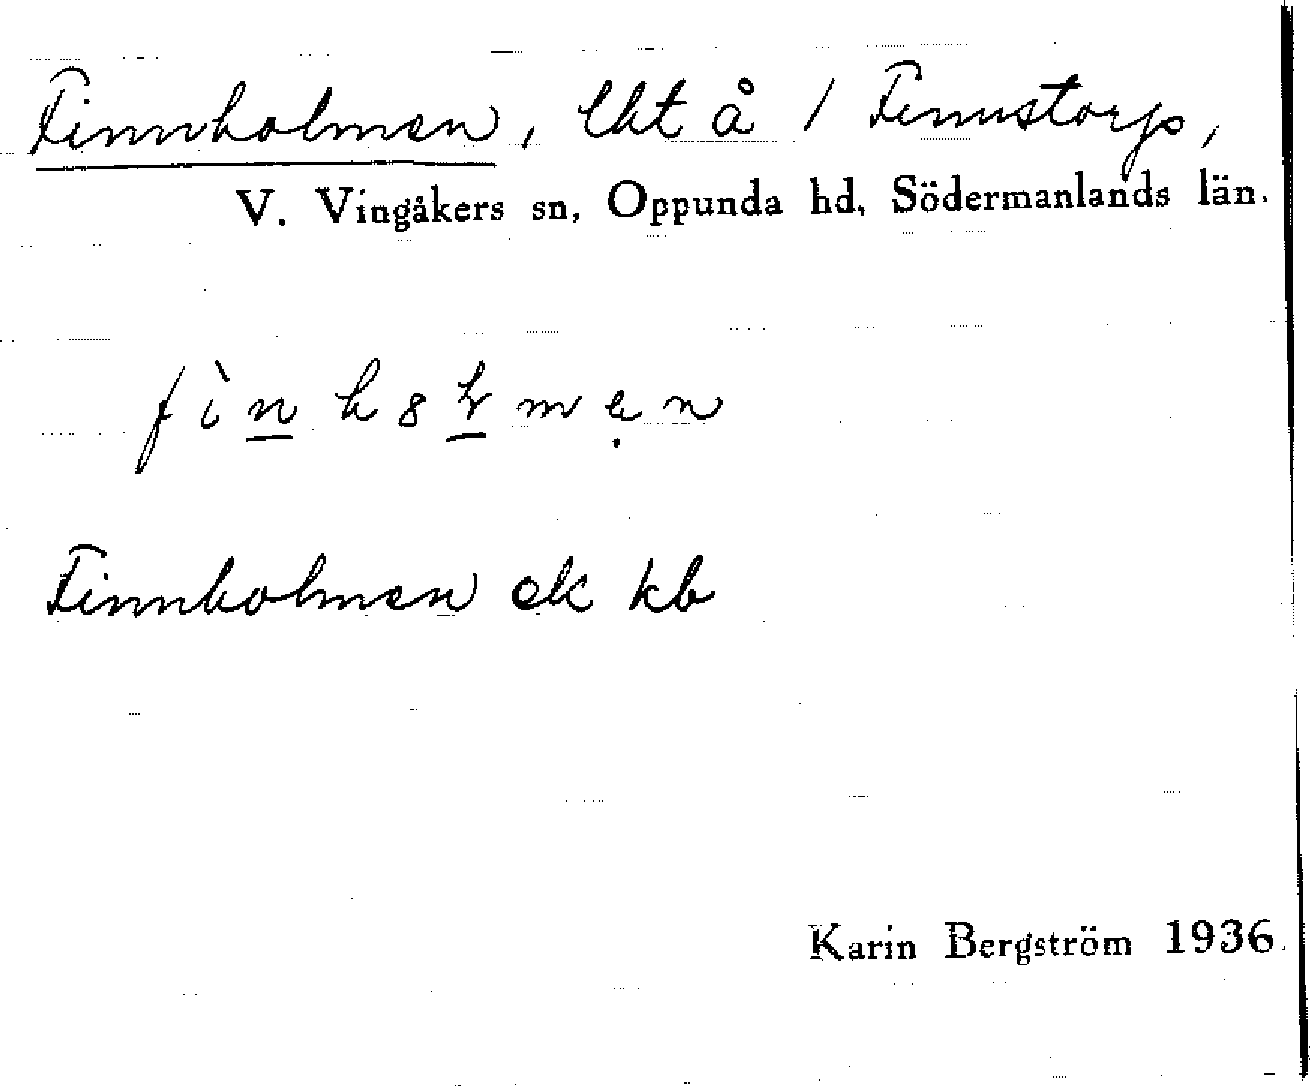 Finnholmen, lht å / Fennstorp,
V. Vingåkers sn, Oppunda hd, Södermanlands län.
Finnholmen ek kb
Karin Bergström 1936.